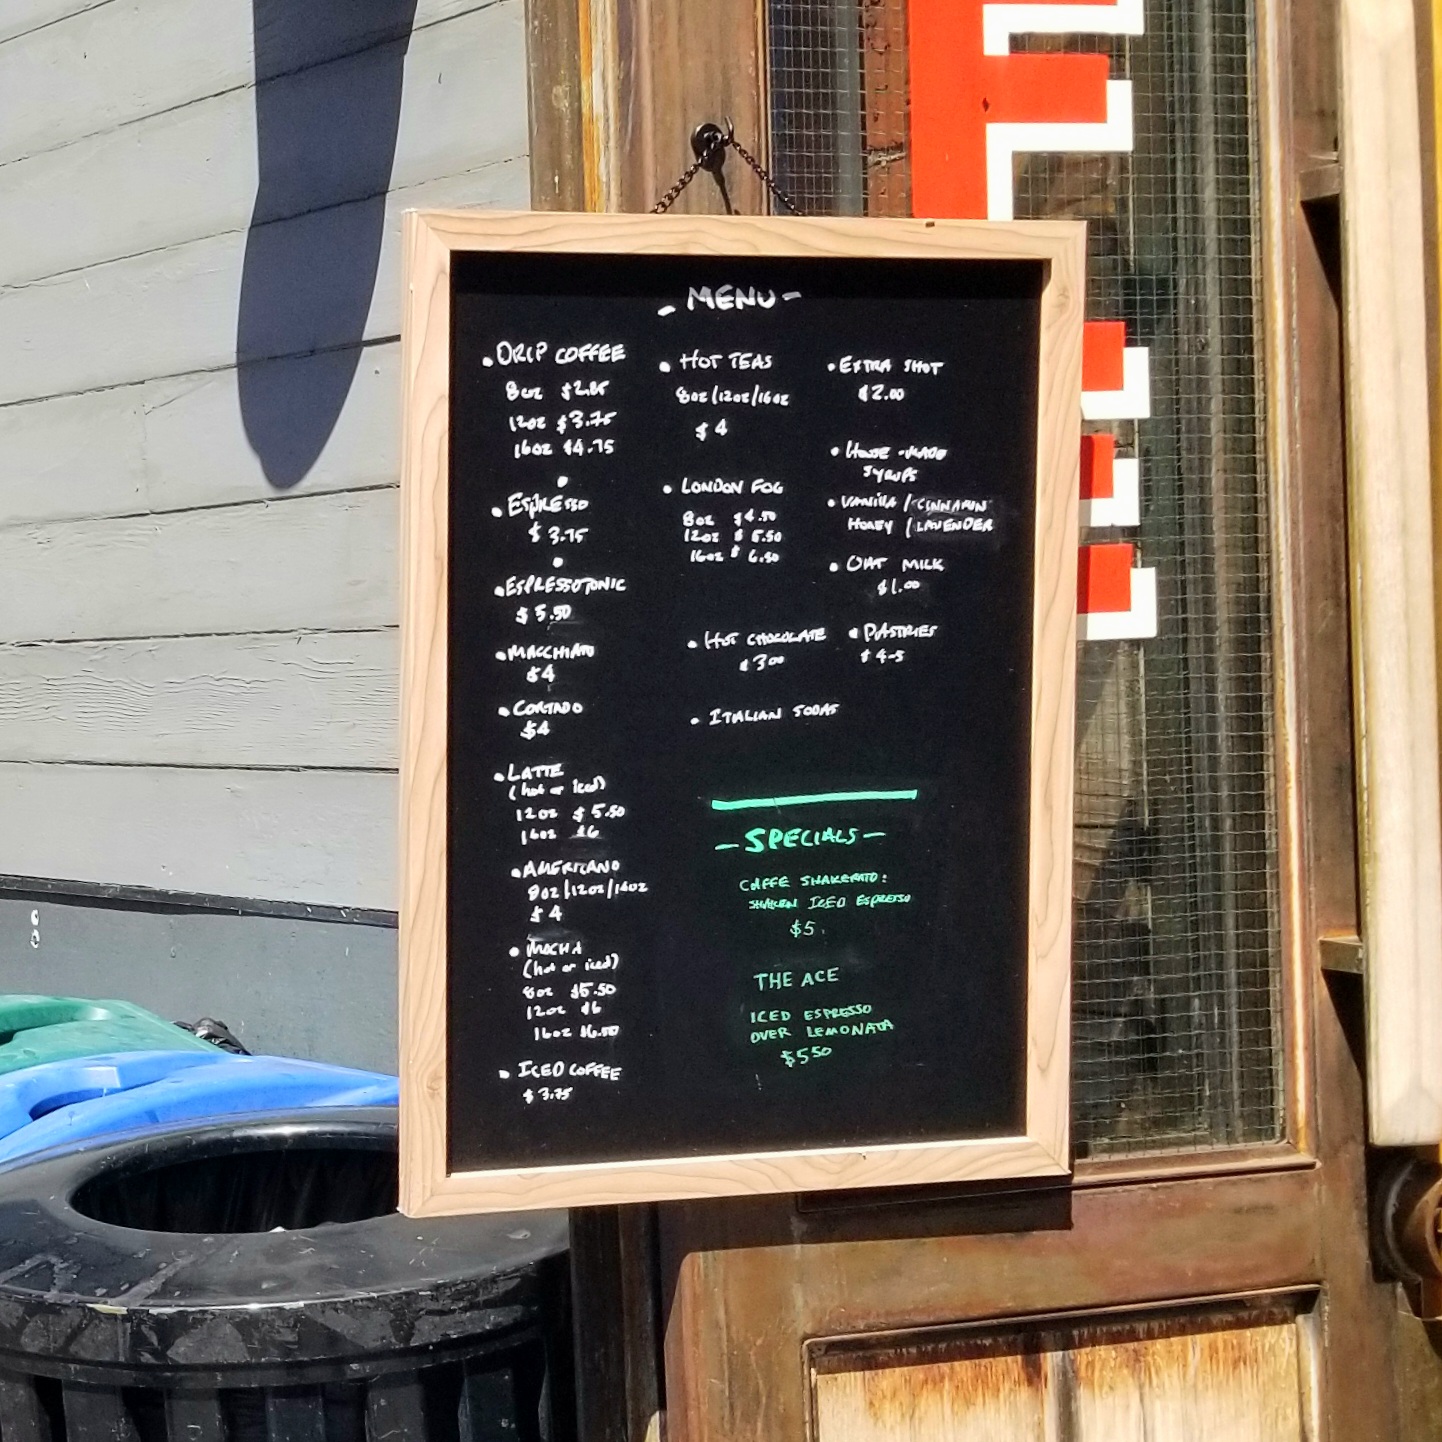 - MENU -
• DRIP COFFEE
8oz $2.85
12oz $3.75
16oz $4.75
• ESPRESSO
$3.75
• ESPRESSO TONIC
$5.50
• MACCHIATO
$4
• CORTADO
$4
• LATTE
(hot or iced)
12oz $5.50
16oz $6
• AMERICANO
8oz/12oz/16oz
$4
• MOCHA
(hot or iced)
8oz $5.50
12oz $6
16oz $6.50
• ICED COFFEE
$3.75
• HOT TEAS
8oz/12oz/16oz
$4
• LONDON FOG
8oz $4.50
12oz $5.50
16oz $6.50
• HOT CHOCOLATE
$3.00
• ITALIAN SODAS
• EXTRA SHOT
$2.00
• HOUSE-MADE
SYRUPS
• VANILLA / CINNAMON
HONEY / LAVENDER
• OAT MILK
$1.00
• PASTRIES
$4-5
- SPECIALS -
CAFFE SHAKERATO:
SHAKEN ICED ESPRESSO
$5
THE ACE
ICED ESPRESSO
OVER LEMONATA
$5.50